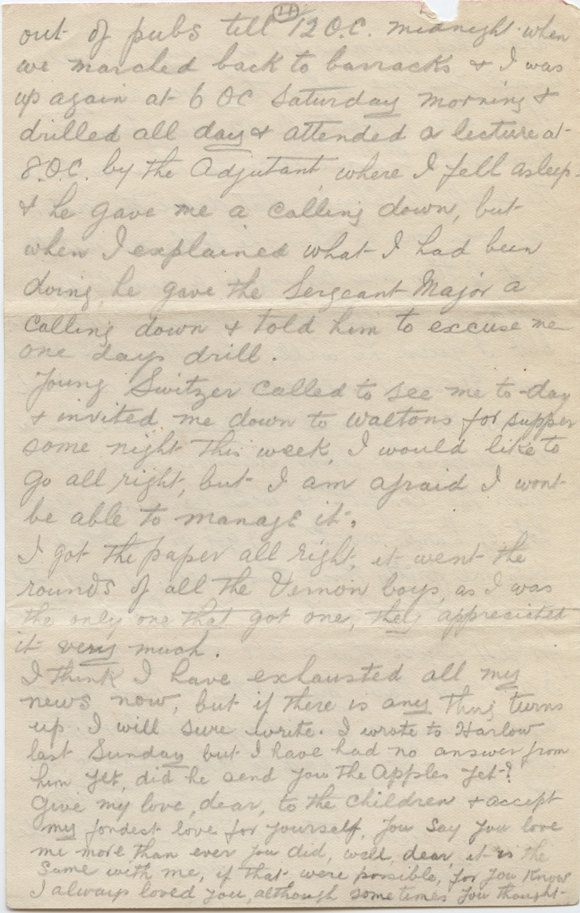 11
out of pubs till 12 O.C. midnight when
we marched back to barracks & I was
up again at 6 OC Saturday morning &
drilled all day & attended a lecture at
8.OC. by the Adjutant, where I fell asleep
& he gave me a calling down, but
when I explained what I had been
doing, he gave the Sergeant Major a
calling down & told him to excuse me
one days drill.
Young Switzer called to see me to-day
& invited me down to Waltons for supper
some night this week, I would like to
go all right, but I am afraid I wont
be able to manage it.
I got the paper all right, it went the
rounds of all the Vernon boys, as I was
the only one that got one, they appreciated
it very much.
I think I have exhausted all my
news now, but if there is any thing turns
up I will sure write. I wrote to Harlow
last Sunday but I have had no answer from
him yet, did he send you the Apples yet?
Give my love, dear, to the children & accept
my fondest love for yourself, you say you love
me more than ever you did, well, dear, it is the
same with me, if that were possible, for you know
I always loved you, although sometimes you thought